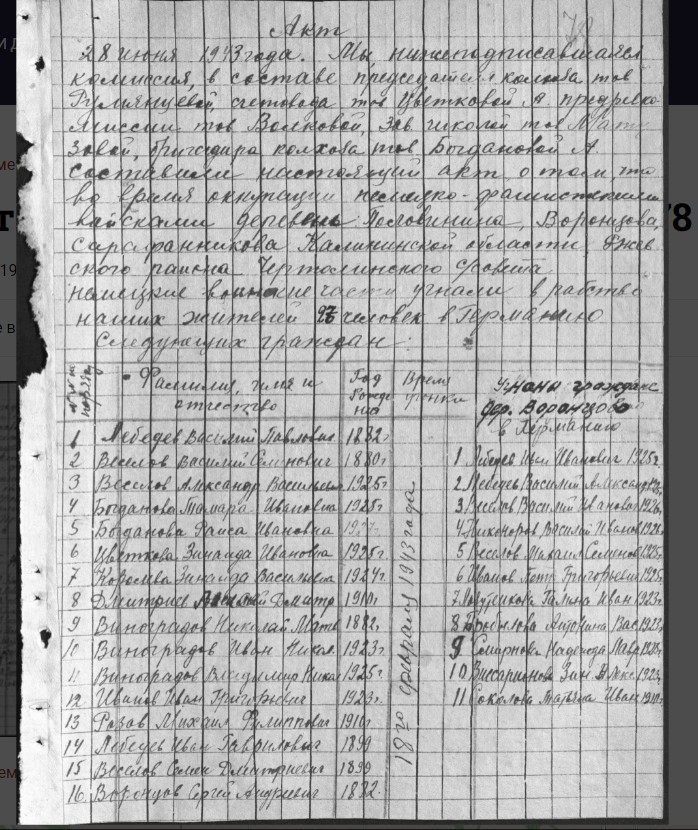 Акт
28 июня 1943 года. Мы, нижеподписавшаяся
комиссия, в составе председателя колхоза тов
Румянцевой, счетовода тов Цветковой А. предревко
миссии тов Волковой, зав. школой тов
зовой, бригадира колхоза тов Богдановой А
составили настоящий акт о том, что
во время оккупации немецко-фашистскими
войсками деревень Половинина, Воронцова,
Сарафанникова Калининской области Ржев
ского района Чертолинского с/совета
немецкие воинские части угнали в рабство
наших жителей 27 человек в Германию
следующих граждан:
№ №
Фамилия, имя и отчество
Год рожде ния
Время угонки
Угнано граждан
дер. Воронцово
в Германию
1 Лебедев Василий Павлович 1882г
2 Веселов Василий Семенович 1880г
3 Веселов Александр Васильевич 1925г
4 Богданова Тамара Ивановна 1925г
5 Богданова Раиса Ивановна 1927г
6 Цветкова Зинаида Ивановна 1925г
7 Королева Зинаида Васильевна 1924г
8 Дмитриев Дмитр 1910г
9 Виноградов Николай Матв 1882г
10 Виноградов Иван Никол 1923г
11 Виноградов Владимир Никол 1925г
12 Иванов Иван Григорьевич 1923г
13 Розов Михаил Филиппович 1910г
14 Лебедев Иван Гаврилович 1899
15 Веселов Семен Дмитриевич 1899
16 Воронцов Сергей Андреевич 1882
18го февраля 1943 года
1 Лебедев Иван Иванович 1925г
2 Лебедев Василий Александр
3 Веселов Василий Иванович 1926
4 Никоноров Василий Иванов 1926
5 Веселов Михаил Семенов 1925
6 Иванов Петр Григорьевич 1925
7 Галина Иван 1923г
8 Воробьева Антонина Вас 1923
9 Смирнова Надежда Павл
10 Виссарионова Зин. Алекс 1923
11 Соколова Татьяна Иван 1910г